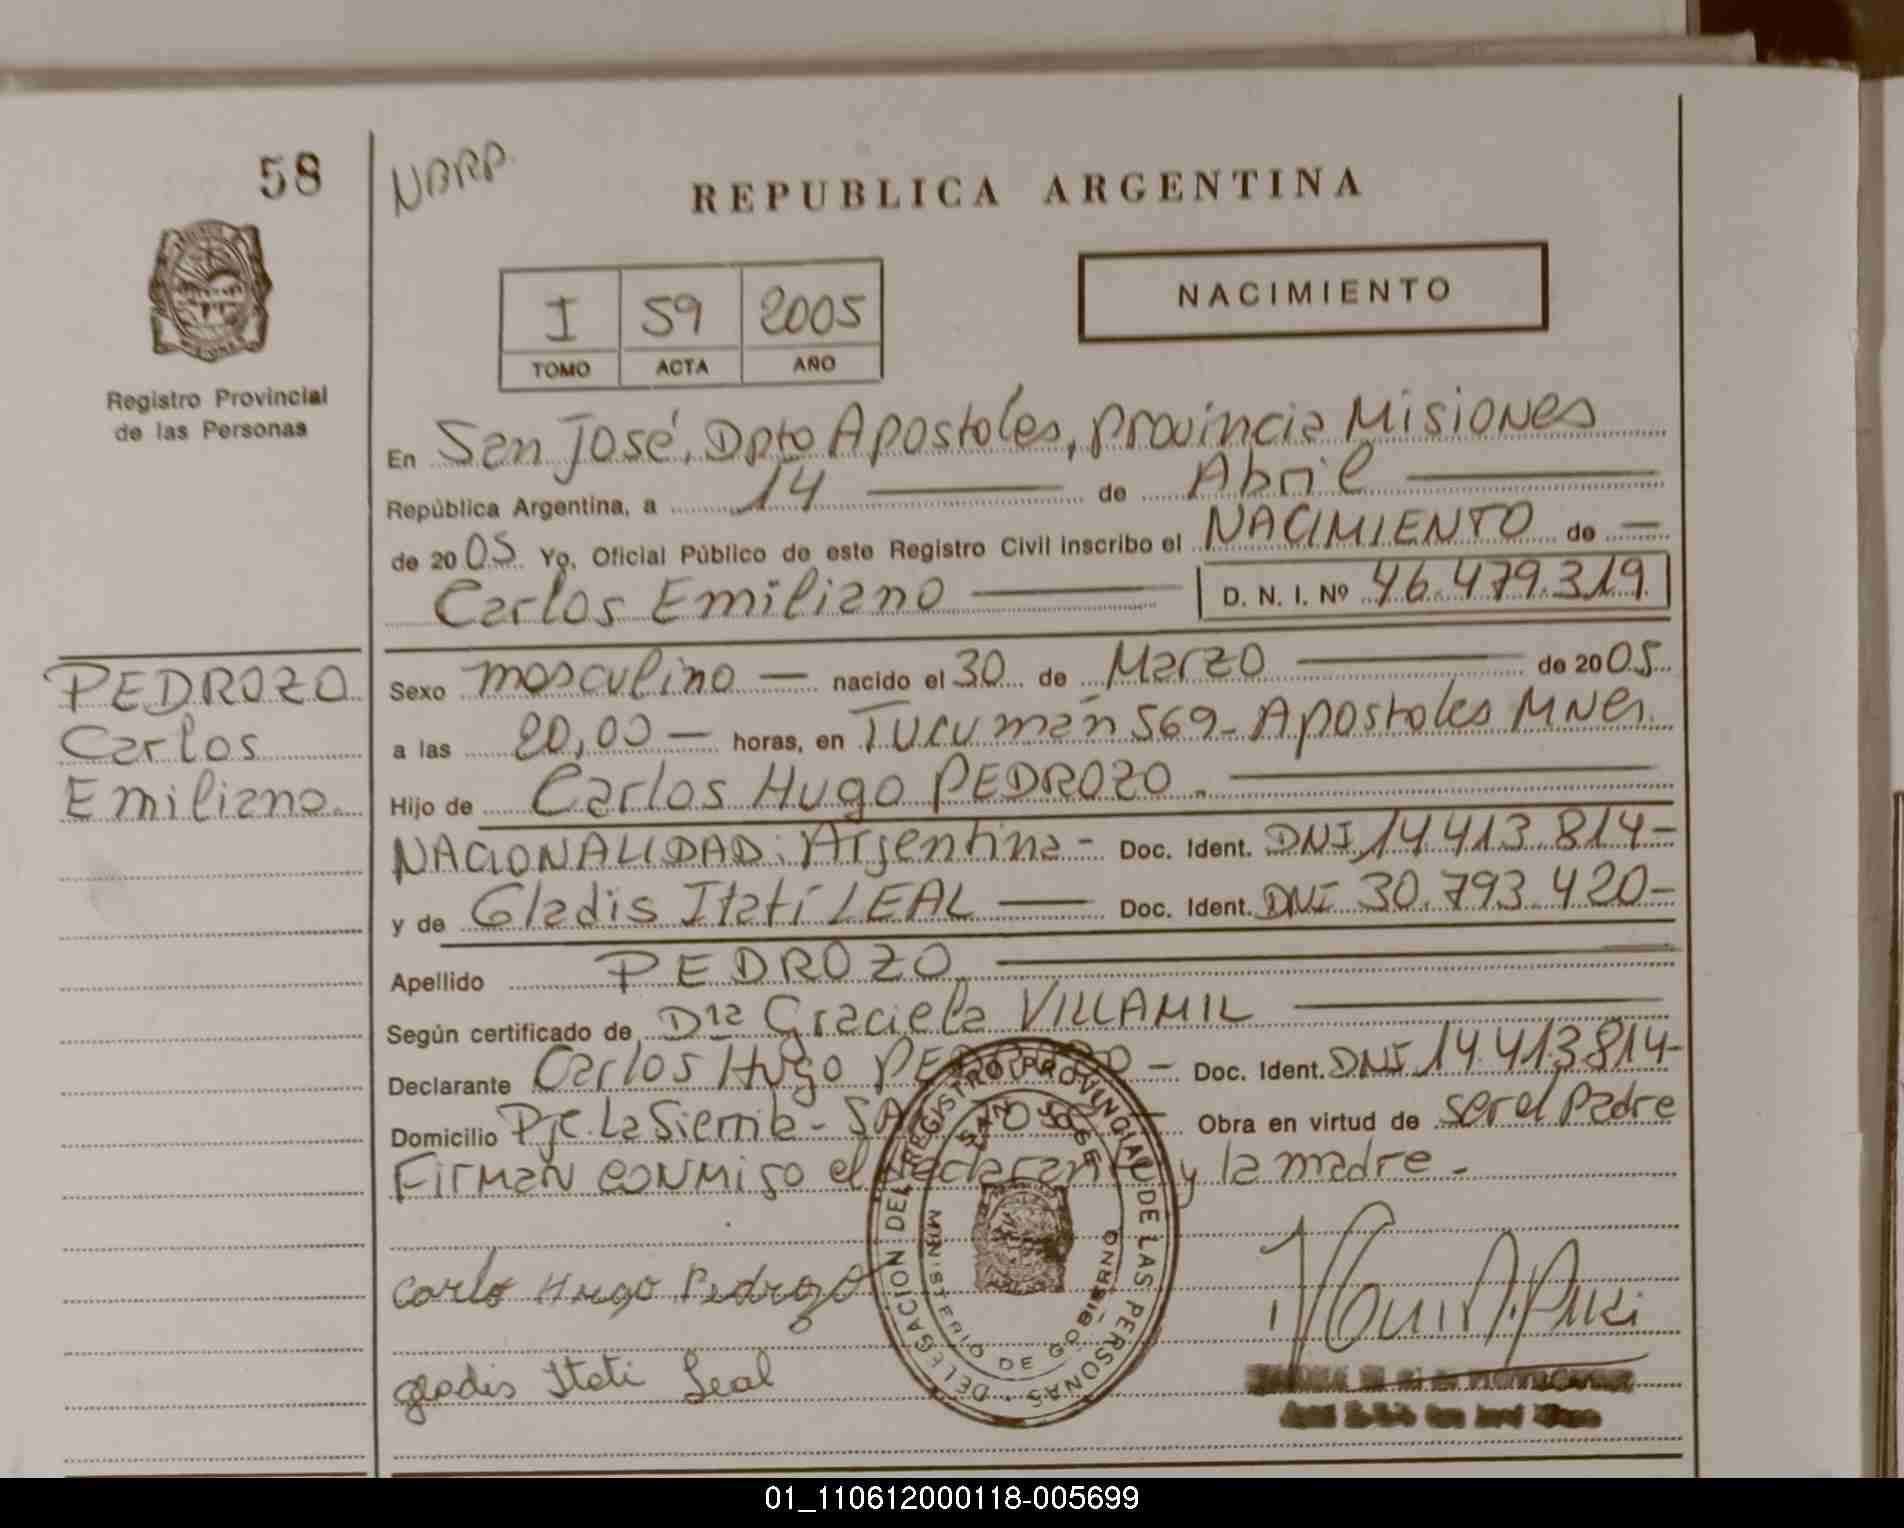 58
NARP.
REPUBLICA ARGENTINA
Registro Provincial
de las Personas
I 59 2005
TOMO ACTA AÑO
NACIMIENTO
En San José, Dpto Apostoles, provincia Misiones
República Argentina, a 14 de Abril
de 2005 Yo, Oficial Público de este Registro Civil inscribo el NACIMIENTO de
Carlos Emiliano D. N. I. Nº 46.479.319.
PEDROZO
Carlos
Emiliano.
Sexo masculino nacido el 30 de Marzo de 2005
a las 20,00 horas, en Tucumán 569 - Apostoles Mnes.
Hijo de Carlos Hugo PEDROZO.
NACIONALIDAD: Argentina - Doc. Ident. DNI 14.413.814-
y de Gladis Itatí LEAL Doc. Ident. DNI 30.793.420-
Apellido PEDROZO
Según certificado de Dra Graciela VILLAMIL
Declarante Carlos Hugo PEDROZO - Doc. Ident. DNI 14.413.814-
Domicilio Pje. La Sierrita - SAN JOSE - Obra en virtud de ser el Padre
Firman conmigo el declarante y la madre.-
Carlo Hugo Pedrozo
gladis Itati Leal
DELEGACION DEL REGISTRO PROVINCIAL DE LAS PERSONAS
SAN JOSE
MINISTERIO DE GOBIERNO
01_110612000118-005699